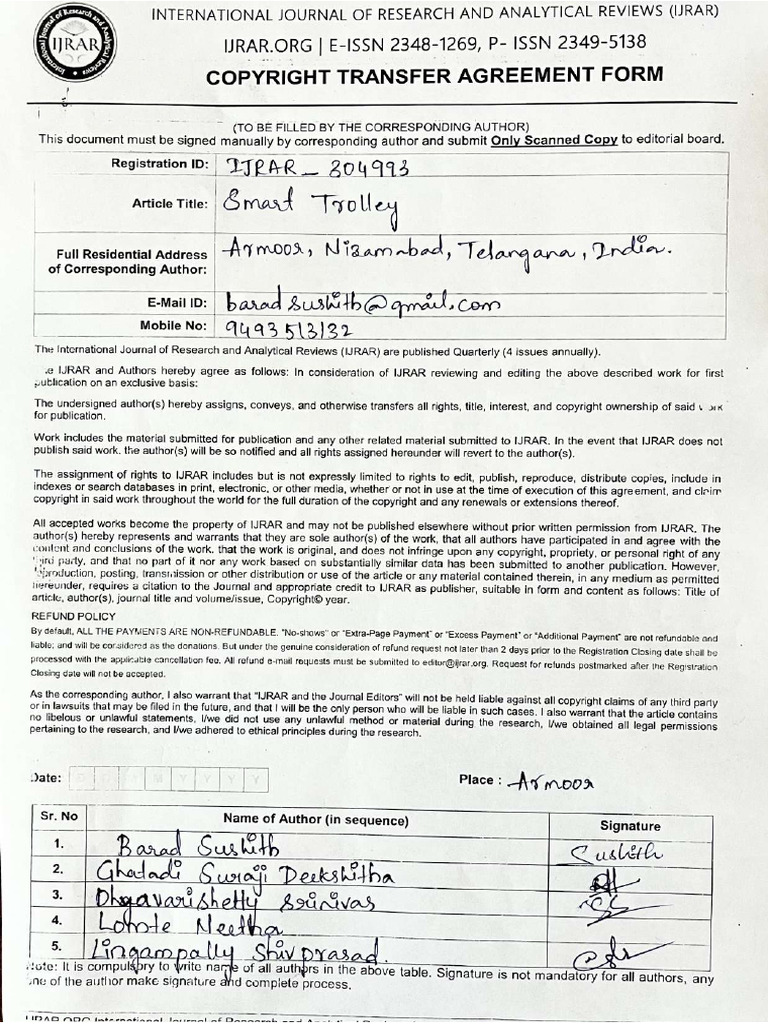 INTERNATIONAL JOURNAL OF RESEARCH AND ANALYTICAL REVIEWS (IJRAR)
International Journal of Research and Analytical Reviews
IJRAR
IJRAR.ORG | E-ISSN 2348-1269, P- ISSN 2349-5138
COPYRIGHT TRANSFER AGREEMENT FORM
(TO BE FILLED BY THE CORRESPONDING AUTHOR)
This document must be signed manually by corresponding author and submit Only Scanned Copy to editorial board.
Registration ID: IJRAR_304993
Article Title: Smart Trolley
Full Residential Address of Corresponding Author: Armoor, Nizamabad, Telangana, India.
E-Mail ID: baradsushith@gmail.com
Mobile No: 9493513132
The International Journal of Research and Analytical Reviews (IJRAR) are published Quarterly (4 issues annually).
IJRAR and Authors hereby agree as follows: In consideration of IJRAR reviewing and editing the above described work for first
publication on an exclusive basis:
The undersigned author(s) hereby assigns, conveys, and otherwise transfers all rights, title, interest, and copyright ownership of said
for publication.
Work includes the material submitted for publication and any other related material submitted to IJRAR. In the event that IJRAR does not
publish said work. the author(s) will be so notified and all rights assigned hereunder will revert to the author(s).
The assignment of rights to IJRAR includes but is not expressly limited to rights to edit, publish, reproduce, distribute copies, include in
indexes or search databases in print, electronic, or other media, whether or not in use at the time of execution of this agreement, and claim
copyright in said work throughout the world for the full duration of the copyright and any renewals or extensions thereof.
All accepted works become the property of IJRAR and may not be published elsewhere without prior written permission from IJRAR. The
author(s) hereby represents and warrants that they are sole author(s) of the work, that all authors have participated in and agree with the
content and conclusions of the work. that the work is original, and does not infringe upon any copyright, propriety, or personal right of any
third party, and that no part of it nor any work based on substantially similar data has been submitted to another publication. However,
reproduction, posting, transmission or other distribution or use of the article or any material contained therein, in any medium as permitted
hereunder, requires a citation to the Journal and appropriate credit to IJRAR as publisher, suitable in form and content as follows: Title of
article, author(s), journal title and volume/issue, Copyright© year.
REFUND POLICY
By default, ALL THE PAYMENTS ARE NON-REFUNDABLE. "No-shows" or "Extra-Page Payment" or "Excess Payment" or "Additional Payment" are not refundable and
liable; and will be considered as the donations. But under the genuine consideration of refund request not later than 2 days prior to the Registration Closing date shall be
processed with the applicable cancellation fee. All refund e-mail requests must be submitted to editor@ijrar.org. Request for refunds postmarked after the Registration
Closing date will not be accepted.
As the corresponding author, I also warrant that "IJRAR and the Journal Editors" will not be held liable against all copyright claims of any third party
or in lawsuits that may be filed in the future, and that I will be the only person who will be liable in such cases. I also warrant that the article contains
no libelous or unlawful statements, I/we did not use any unlawful method or material during the research, I/we obtained all legal permissions
pertaining to the research, and I/we adhered to ethical principles during the research.
Date: D D M M Y Y Y Y Place : Armoor
Sr. No Name of Author (in sequence) Signature
1. Barad Sushith Sushith
2. Ghatadi Suraji Deekshitha
3. Dhgavarishetty Srinivas
4. Lomte Neetha
5. Lingampally Shivprasad.
Note: It is compulsory to write name of all authors in the above table. Signature is not mandatory for all authors, any
one of the author make signature and complete process.